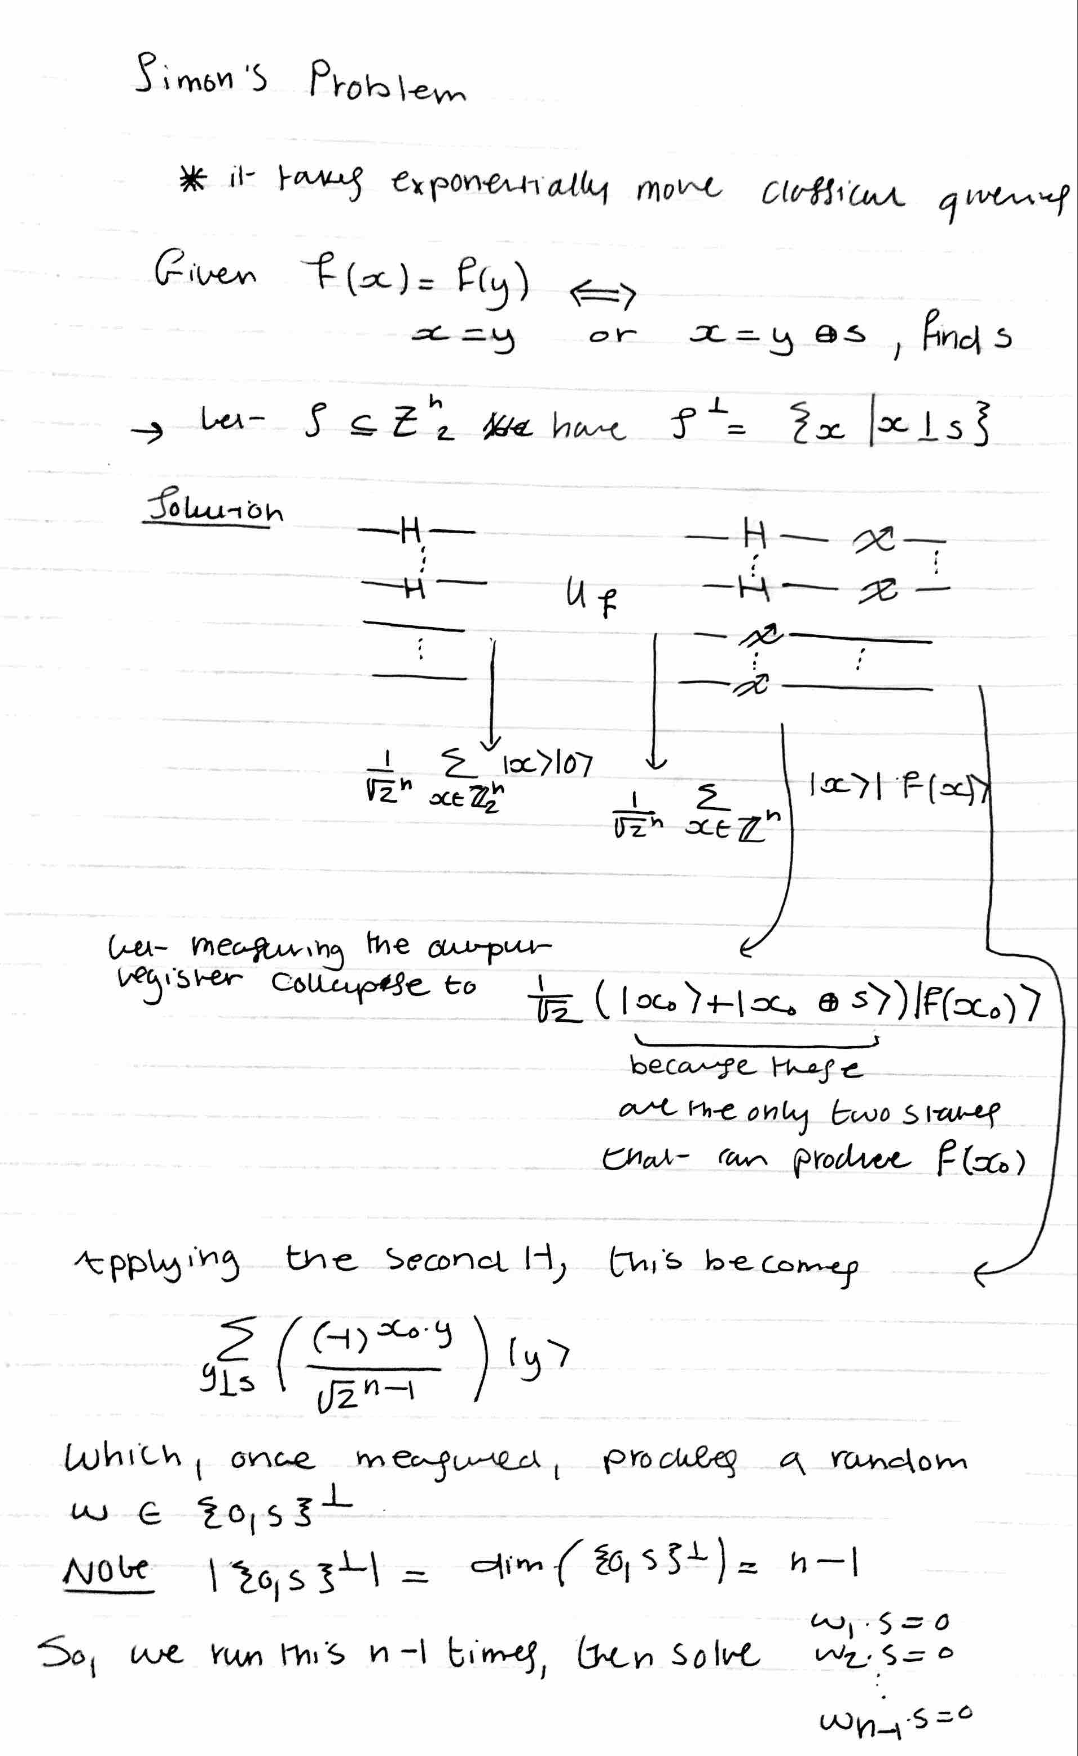 Simon's Problem
* it takes exponentially more classical queries
Given f(x) = f(y) ⟺
x = y or x = y ⊕ s, find s
→ Let S ⊆ Z₂ⁿ have S^⊥ = {x | x ⊥ s}
Solution
—H— —H— x —
⋮ ⋮ ⋮
—H— U_f —H— x —
— x —
⋮ ⋮ ⋮
— x —
1/√2ⁿ Σ_{x∈ℤ₂ⁿ} |x⟩|0⟩
1/√2ⁿ Σ_{x∈ℤⁿ} |x⟩|f(x)⟩
Let measuring the output
register collapse to 1/√2 (|x₀⟩+|x₀ ⊕ s⟩)|f(x₀)⟩
because these
are the only two states
that can produce f(x₀)
Applying the second H, this becomes
Σ_{y⊥s} ((-1)^{x₀·y} / √2^{n-1}) |y⟩
Which, once measured, produces a random
w ∈ {0,s}^⊥
Note |{0,s}^⊥| = dim({0,s}^⊥) = n-1
w₁·s=0
So, we run this n-1 times, then solve w₂·s=0
⋮
w_{n-1}·s=0